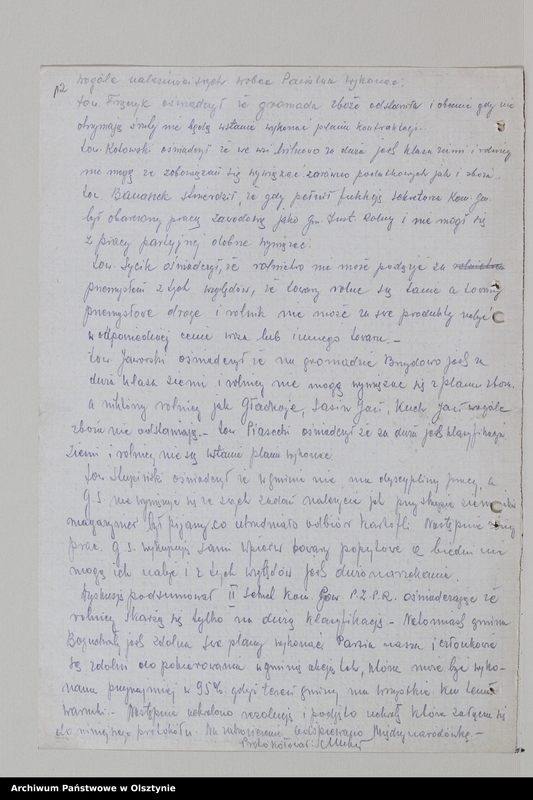 12
wogóle należności swych wobec Państwa wykonać.
tow. Frączyk oświadczył że gromada zboże odstawiła i obecnie gdy nie
otrzymają śruty nie będą wstanie wykonać planu kontraktacji.
tow. Kotowski oświadczył że we wsi za duża jest klasa ziemi i rolnicy
nie mogą ze zobowiązań się wywiązać zarówno podatkowych jak i zboża.
tow. Banaszek stwierdził, że gdy pełnił funkcję sekretarza Kom. Gm.
był obarczony pracą zawodową jako gm. Inst. Rolny i nie mógł się
z pracy partyjnej dobrze wywiązać.
tow. Sycik oświadczył, że rolnictwo nie może podążyć za
przemysłem z tych względów, że towary rolne są tanie a towary
przemysłowe drogie i rolnik nie może za swe produkty nabyć
w odpowiedniej cenie wozu lub innego towaru. -
tow. Jaworski oświadczył że na gromadzie jest za
duża klasa ziemi i rolnicy nie mogą wywiązać się z planu zboża,
a niektórzy rolnicy jak Sasin Jan, Kuch Jan wogóle
zboża nie odstawiają. - tow. Piasecki oświadczył że za duża jest klasyfikacja
ziemi i rolnicy nie są wstanie planu wykonać
tow. Słupiński oświadczył że w gminie nie ma dyscypliny pracy, a
G.S. nie wywiązuje się ze swych zadań należycie jak przy skupie ziemniaków
magazynier był pijany co utrudniało odbiór kartofli. Następnie
prac. G.S. wykupują sami wpierw towary popytowe a biedni nie
mogą ich nabyć i z tych względów jest dużo narzekania.
Dyskusję podsumował II Sekret. Kom. Pow. P.Z.P.R. oświadczając że
rolnicy skarżą się tylko na dużą klasyfikację - Natomiast gmina
jest zdolna swe plany wykonać. Partia nasza i członkowie
są zdolni do pokierowania w gminie akcją tak, która może być wyko-
nana przynajmniej w 95%. gdyż teren gminy ma wszystkie ku temu
warunki. - Następnie uchwalono rezolucję i podjęto uchwałę która załącza się
do niniejszego protokółu. Na zakończenie odśpiewano Międzynarodówkę. -
Protokółował:
Archiwum Państwowe w Olsztynie